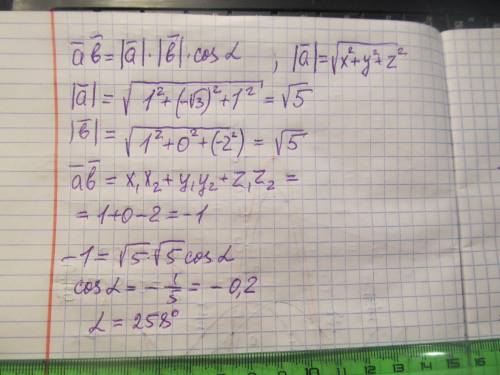 a̅b̅ = |a̅|·|b̅|·cosα , |a̅| = √(x²+y²+z²)
|a̅| = √(1²+(-√3)²+1²) = √5
|b̅| = √(1²+0²+(-2²)) = √5
a̅b̅ = x₁x₂+y₁y₂+z₁z₂ =
= 1+0-2 = -1
-1 = √5·√5 cosα
cosα = -1/5 = -0,2
α = 258°
10 11 12 13 14 15 16